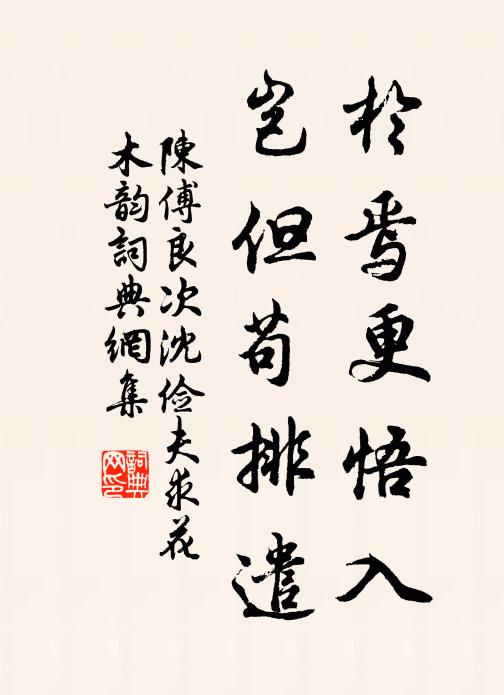 於焉更悟入
豈但苟排遣
陳傅良次沈儉夫求花
木韵詞典網集
詞典
网印